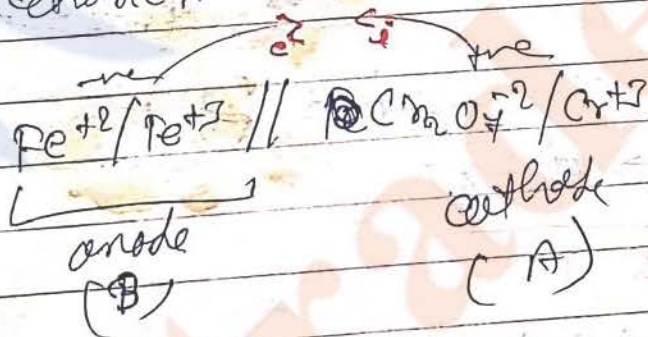 e⁻ i
-ve +ve
Fe+2/Fe+3 // Cr2O7-2/Cr+3
anode cathode
(B) (A)